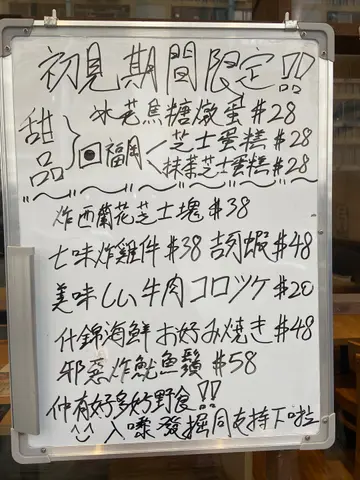 初見期間限定!!
甜品
冰花焦糖燉蛋 $28
福岡
芝士蛋糕 $28
抹茶芝士蛋糕 $28
炸西蘭花芝士塊 $38
七味炸雞件 $38 吉列蝦 $48
美味しい牛肉コロツケ $20
什錦海鮮お好み焼き $48
邪惡炸魷魚鬚 $58
仲有好多好野食!!
入嚟發掘同支持下啦